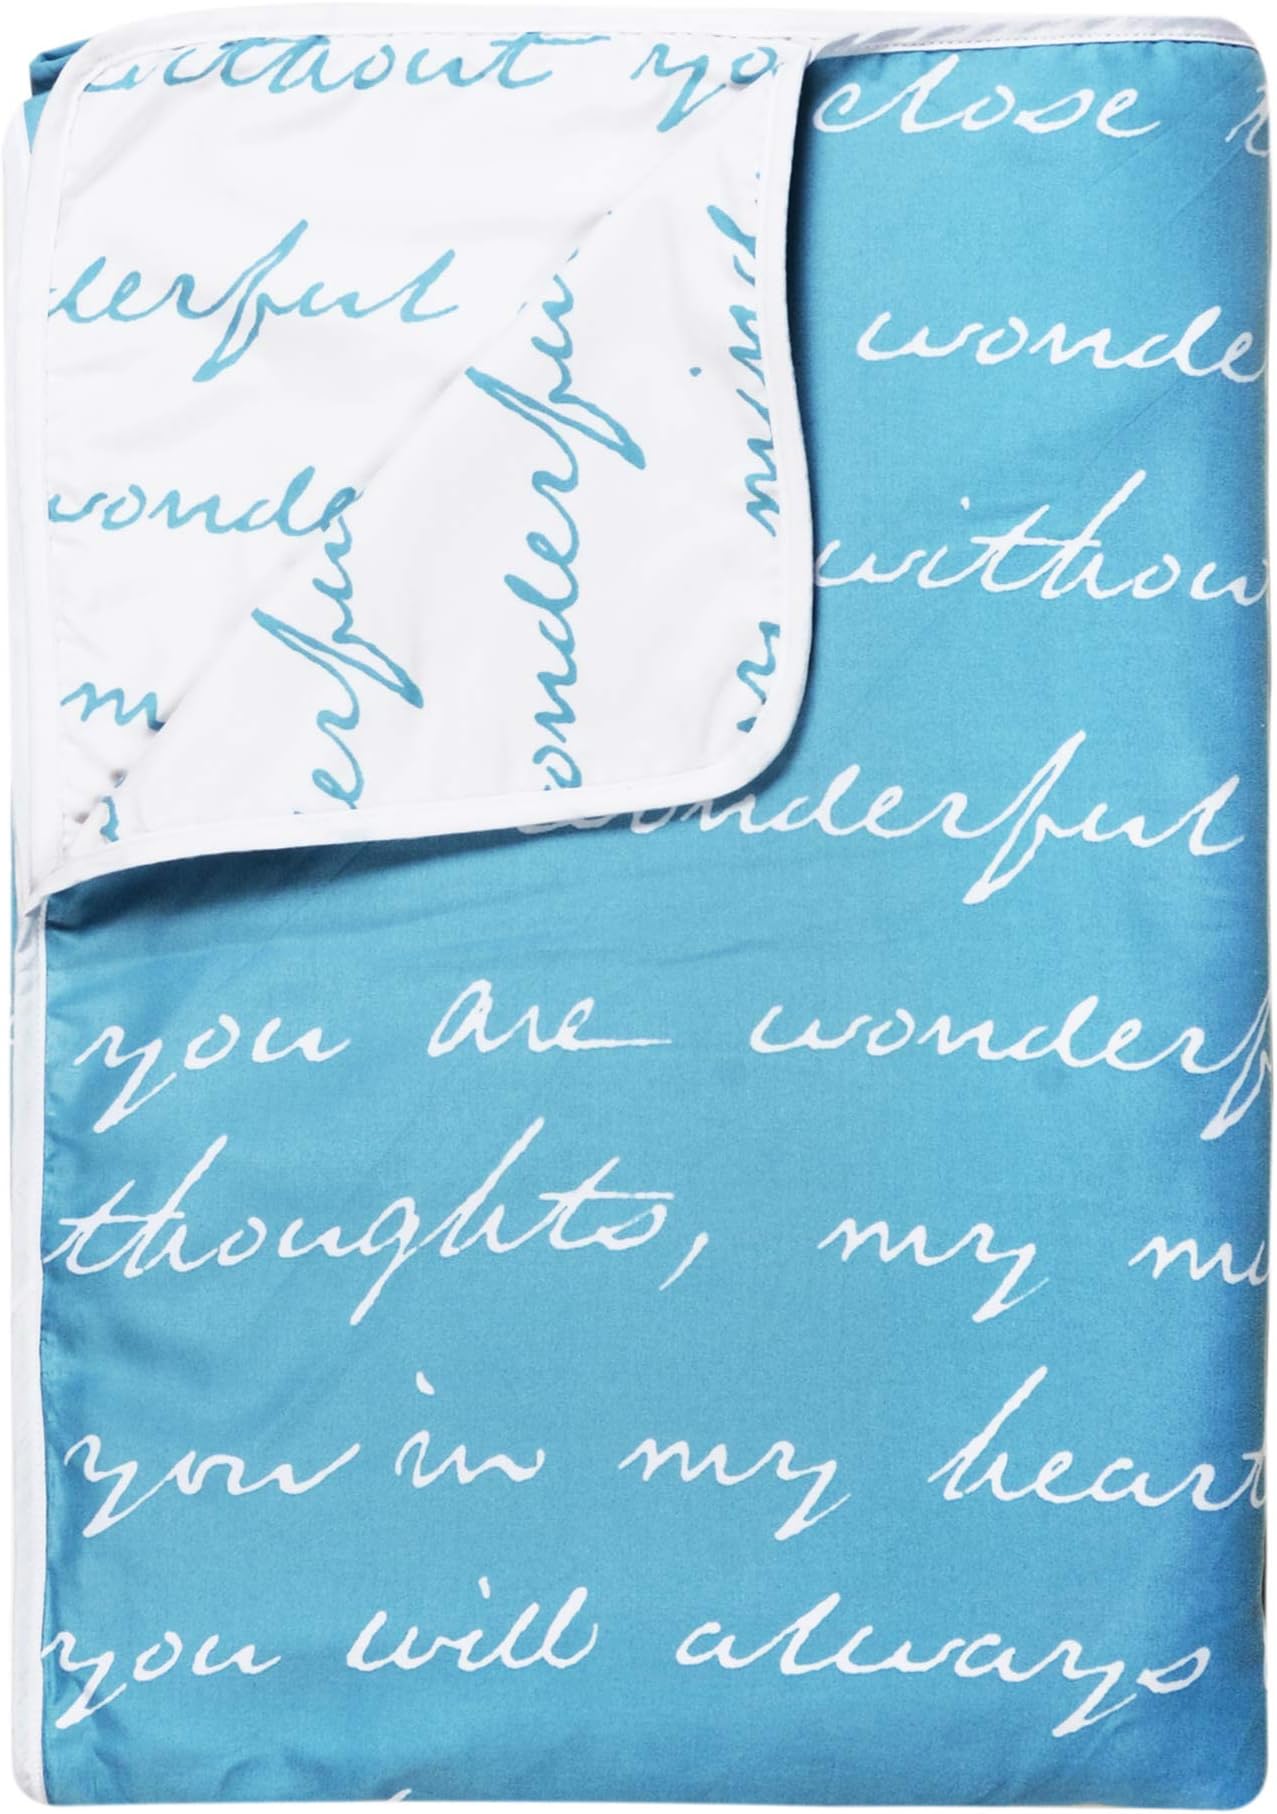 without yo
close
derful
wonde
wonde
withou
m
wonderful
wonderful
you are wonderf
thoughts, my m
you in my heart
you will always